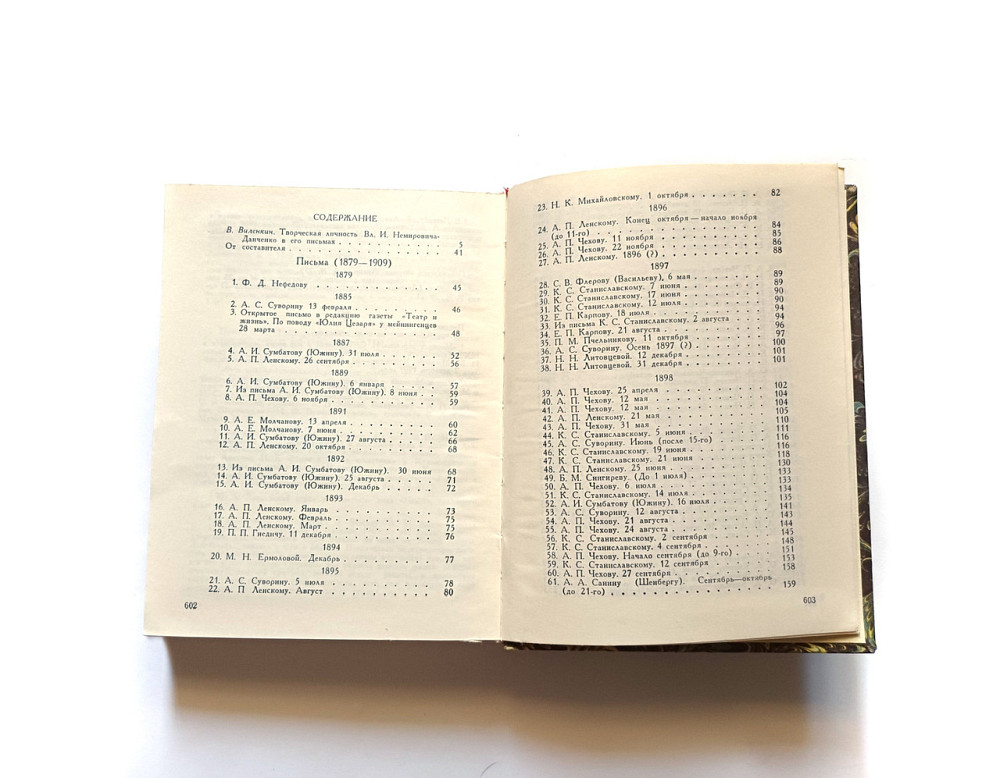 СОДЕРЖАНИЕ
В. Виленкин. Творческая личность Вл. И. Немировича-
Данченко в его письмах . . . . . . . . . . 5
От составителя . . . . . . . . . . 41
Письма (1879—1909)
1879
1. Ф. Д. Нефедову . . . . . . . . . . 45
1885
2. А. С. Суворину 13 февраля . . . . . . . . . . 46
3. Открытое письмо в редакцию газеты «Театр и
жизнь». По поводу «Юлия Цезаря» у мейнингенцев
28 марта . . . . . . . . . . 48
1887
4. А. И. Сумбатову (Южину). 31 июля . . . . . 52
5. А. П. Ленскому. 26 сентября . . . . . . 56
1889
6. А. И. Сумбатову (Южину). 6 января . . . . . 57
7. Из письма А. И. Сумбатову (Южину). 8 июня . . . 59
8. А. П. Чехову. 6 ноября . . . . . . . . . 59
1891
9. А. Е. Молчанову. 13 апреля . . . . . . . 60
10. А. Е. Молчанову. 7 июня . . . . . . . . 62
11. А. И. Сумбатову (Южину). 27 августа . . . . . 66
12. А. П. Ленскому. 20 октября . . . . . . . 68
1892
13. Из письма А. И. Сумбатову (Южину). 30 июня 68
14. А. И. Сумбатову (Южину). 25 августа . . . . 71
15. А. И. Сумбатову (Южину). Декабрь . . . . . 72
1893
16. А. П. Ленскому. Январь . . . . . . . . 73
17. А. П. Ленскому. Февраль . . . . . . . . 75
18. А. П. Ленскому. Март . . . . . . . . 75
19. П. П. Гнедичу. 11 декабря . . . . . . . . 76
1894
20. М. Н. Ермоловой. Декабрь . . . . . . . . 77
1895
21. А. С. Суворину. 5 июля . . . . . . . . 78
22. А. П Ленскому. Август . . . . . . . . 80
602
23. Н. К. Михайловскому. 1 октября . . . . . . . 82
1896
24. А. П. Ленскому. Конец октября — начало ноября
(до 11-го) . . . . . . . . . . 84
25. А. П. Чехову. 11 ноября . . . . . . . . 85
26. А. П. Чехову. 22 ноября . . . . . . . . 86
27. А. П. Ленскому. 1896 (?) . . . . . . . . 88
1897
28. С. В. Флерову (Васильеву), 6 мая . . . . . . 89
29. К. С. Станиславскому. 7 июня . . . . . . . 89
30. К. С. Станиславскому. 17 июня . . . . . . . 90
31. К. С. Станиславскому. 12 июля . . . . . . . 90
32. Е. П. Карпову. 18 июля . . . . . . . . 94
33. Из письма К. С. Станиславскому. 2 августа . . . 94
34. Е. П. Карпову. 21 августа . . . . . . . . 96
35. П. М. Пчельникову. 11 октября . . . . . . 97
36. А. С. Суворину. Осень 1897 (?) . . . . . . 100
37. Н. Н. Литовцевой. 12 декабря . . . . . . . 101
38. Н. Н. Литовцевой. 31 декабря . . . . . . . 101
1898
39. А. П. Чехову. 25 апреля . . . . . . . . 102
40. А. П. Чехову. 12 мая . . . . . . . . 104
41. А. П. Чехову. 12 мая . . . . . . . . 104
42. А. П. Ленскому. 21 мая . . . . . . . . 105
43. А. П. Чехову. 31 мая . . . . . . . . 110
44. К. С. Станиславскому. 5 июня . . . . . . . 111
45. А. С. Суворину. Июнь (после 15-го) . . . . . 116
46. К. С. Станиславскому. 19 июня . . . . . . . 116
47. К. С. Станиславскому. 21 июня . . . . . . . 118
48. А. П. Ленскому. 25 июня . . . . . . . . 130
49. Б. М. Снигиреву. (До 1 июля) . . . . . . . 133
50. А. П. Чехову. 6 июля . . . . . . . . 133
51. К. С. Станиславскому. 14 июля . . . . . . . 134
52. А. И. Сумбатову (Южину). 16 июля . . . . . 135
53. А. С. Суворину. 12 августа . . . . . . . 141
54. А. П. Чехову. 21 августа . . . . . . . . 143
55. А. П. Чехову. 24 августа . . . . . . . . 144
56. К. С. Станиславскому. 2 сентября . . . . . . 145
57. К. С. Станиславскому. 4 сентября . . . . . . 148
58. А. П. Чехову. Начало сентября (до 9-го) . . . . 151
59. К. С. Станиславскому. 12 сентября . . . . . 153
60. А. П. Чехову. 27 сентября . . . . . . . . 158
61. А. А. Санину (Шенбергу). Сентябрь—октябрь
(до 21-го) . . . . . . . . . . 159
603